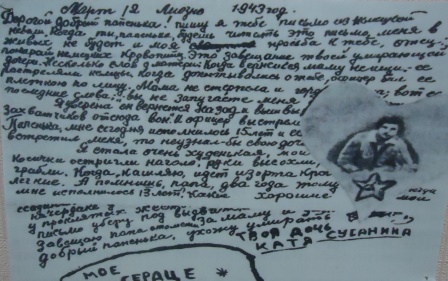 Март 12 Лиозно 1943 год.
Дорогой добрый папенька! пишу я тебе письмо из немецкой
неволи. Когда ты, папенька, будешь читать это письмо меня в
живых не будет и моя просьба к тебе, отец:
покарай немецких кровопийц. Это завещание твоей умирающей
дочери. Несколько слов о матери. Когда вернешься маму не ищи. ее
расстреляли немцы. Когда допытывались о тебе, офицер бил ее
плеткой по лицу. Мама не стерпела и гордо вот ее
последние слова. вы не запугаете меня
Я уверена он вернется назад и вышвырнет
захватчиков отсюда вон. и офицер выстрелил
Папенька, мне сегодня исполнилось 15 лет и если
встретил меня, то не узнал бы свою дочь
Я стала очень худенькая, мои
косички остригли наголо, руки высохли,
грабли. Когда кашляю, идет из рта кровь
легкие. А помнишь, папа, два года тому
мне исполнилось 13 лет. Какие хорошие
мои
у проклятых
письмо
Завещаю папа отомсти за маму и
добрый папенька, ухожу умирать
ТВОЯ ДОЧЬ
КАТЯ СУСАНИНА
МОЕ
СЕРДЦЕ